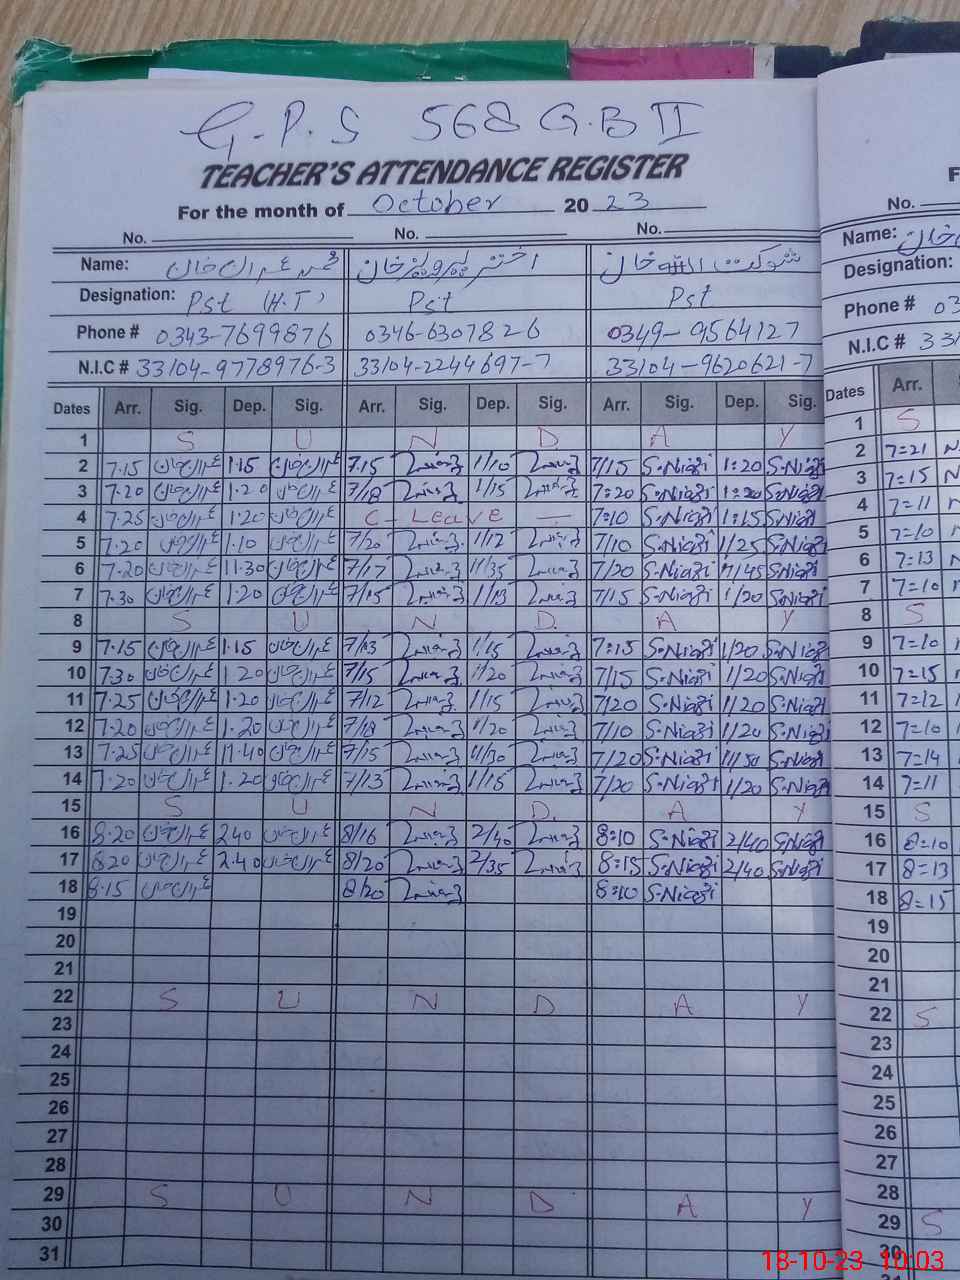 G.P.S 568 G.B II
TEACHER'S ATTENDANCE REGISTER
For the month of October 20 23
No. No. No. No.
Name: محمد عمران خان اختر پرویز خان شوکت اللہ خان Name:
Designation: Pst (H.T) Pst Pst Designation:
Phone # 0343-7699876 0346-6307826 0349-9564127 Phone # 03
N.I.C # 33104-9778976-3 33104-2244697-7 33104-9620621-7 N.I.C # 33
Dates Arr. Sig. Dep. Sig. Arr. Sig. Dep. Sig. Arr. Sig. Dep. Sig. Dates Arr.
1 S U N D A Y 1 S
2 7.15 عمران خان 1.15 عمران خان 7.15 1/10 7/15 S.Niazi 1:20 S.Niazi 2 7=21
3 7.20 عمران خان 1.20 عمران خان 7/18 1/15 7:20 S.Niazi 1:20 S.Niazi 3 7=15
4 7.25 عمران خان 1.20 عمران خان C - Leave — 7:10 S.Niazi 1:15 S.Niazi 4 7=11
5 7.20 عمران خان 1.10 عمران خان 7/20 1/12 7/10 S.Niazi 1/25 S.Niazi 5 7=10
6 7.20 عمران خان 11.30 عمران خان 7/17 11/35 7/20 S.Niazi 11/45 S.Niazi 6 7=13
7 7.30 عمران خان 1.20 عمران خان 7/15 1/13 7/15 S.Niazi 1/20 S.Niazi 7 7=10
8 S U N D. A Y 8 S
9 7.15 عمران خان 1.15 عمران خان 7/13 1/15 7:15 S.Niazi 1/20 S.Niazi 9 7=10
10 7.30 عمران خان 1.20 عمران خان 7/15 1/20 7/15 S.Niazi 1/20 S.Niazi 10 7=15
11 7.25 عمران خان 1.20 عمران خان 7/12 1/15 7/20 S.Niazi 1/20 S.Niazi 11 7=12
12 7.20 عمران خان 1.20 عمران خان 7/18 1/20 7/10 S.Niazi 1/20 S.Niazi 12 7=10
13 7.25 عمران خان 11.40 عمران خان 7/15 11/30 7/20 S.Niazi 11/50 S.Niazi 13 7=14
14 7.20 عمران خان 1.20 عمران خان 7/13 1/15 7/20 S.Niazi 1/20 S.Niazi 14 7=11
15 S U N D. A Y 15 S
16 8.20 عمران خان 2.40 عمران خان 8/16 2/40 8:10 S.Niazi 2/40 S.Niazi 16 8=10
17 8.20 عمران خان 2.40 عمران خان 8/20 2/35 8:15 S.Niazi 2/40 S.Niazi 17 8=13
18 8.15 عمران خان 8/20 8:10 S.Niazi 18 8=15
19 19
20 20
21 21
22 S U N D. A Y 22 S
23 23
24 24
25 25
26 26
27 27
28 28
29 S U N D A Y 29 S
30 30
31
18-10-23 10:03